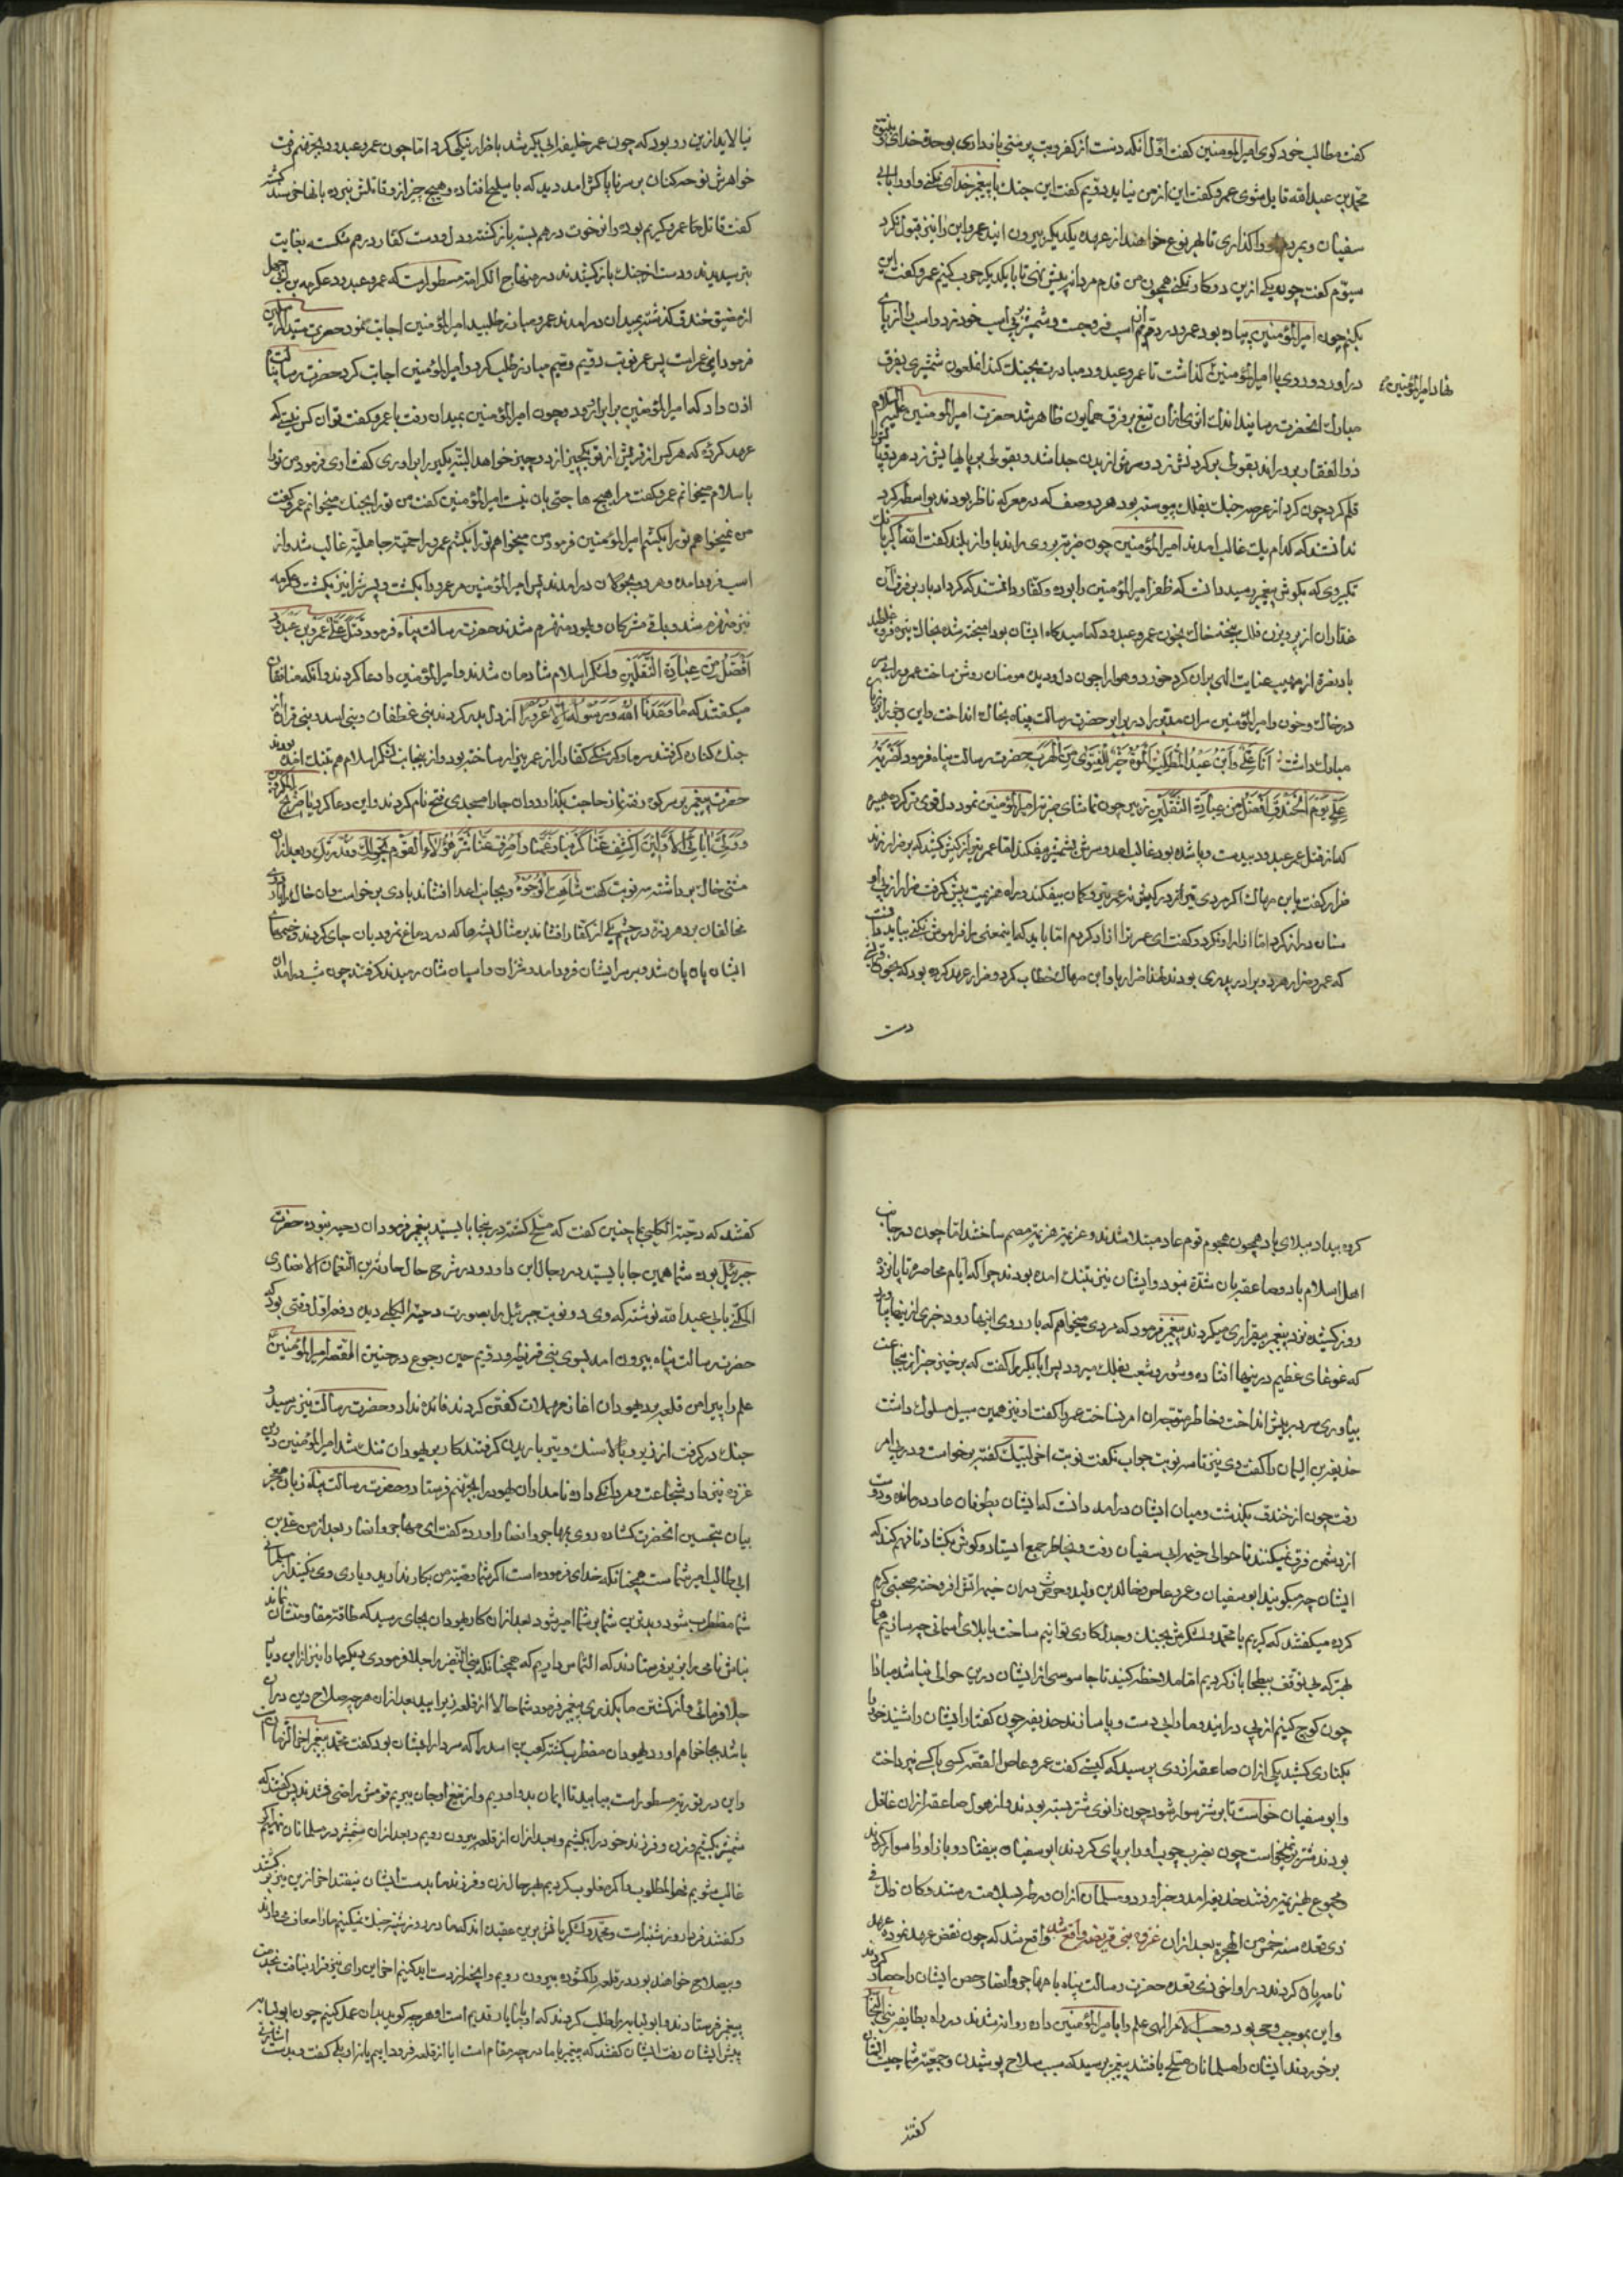 کفت مطالب خود کوی امیرالمؤمنین کفت اوّل آنکه دست از کفر و بت پرستی بازداری بوحدت خدای و نبوّة
محمّد بن عبدالله قایل شوی عمرو کفت این از من نیاید دویّم کفت این جنك با پیغمبر خدای نکنی و او را بابی
سفیان و بمردم واکذاری تا بهر نوع خواهند از عهده یکدیکر بیرون ایند عمرو این را نیز قبول نکرد
سیوّم کفت چون یکی ازین دو کار نکنی همچون من قدم مردانه پیش نهی تا با یکدیکر حرب کنیم عمرو کفت این
بکنم چون امیرالمؤمنین پیاده بود عمرو در دم از اسب فرو جست و شمشیر بر پی اسب خود زد و اسب را از پای
دراورد و روی با امیرالمؤمنین
نهاد امیرالمؤمنین ع
کذاشت تا عمرو عبدود مبادرت بجنك کند انملعون شمشیری بفرق
مبارك انحضرت رسانید اندك اثری ازان تیغ بر فرق همایون ظاهر شد حضرت امیرالمؤمنین علیه السلام
ذوالفقار بدو راند بقولی بر کردنش زد و سرش از بدن جدا شد و بقولی بر پایهایش زد هر دو پا را
قلم کرد چون کرد از عرصه جنك بفلك پیوسته بود هر دو صف که در معرکه ناظر بودند بواسطه کرد
ندانستند که کدام یك غالب امدند امیرالمؤمنین چون ضربت بروی راند باواز بلند کفت الله اکبر بانك
تکبیر وی که بکوش پیغمبر رسید دانست که ظفر امیرالمؤمنین را بوده و کفار دانستند که کرد ادبار بر فرق آن
غدّاران از پرویزن فلك بیخته خاك بخون عمرو عبدود که امیدکاه ایشان بود امیخته شده بخاك تیره فرو غلطید
باد نصرة از مهب عنایت الهی بران کرد خورد و هوا را چون دل و دیدن مومنان روشن ساخت عمرو را بی سر
در خاك و خون و امیرالمؤمنین سر ان مدبر را در برابر حضرت رسالت پناه بخاك انداخت و این رجز بر زبان
مبارك داشت انا علی و ابن عبد المطلب الموت خیر للفتی من الهرب حضرت رسالت پناه فرمود لضربة
علی یوم الخندق افضل من عبادة الثقلین زبیر چون تماشای ضربت امیرالمؤمنین نمود دل قوی تر کرده
که از قتل عمر عبدود بیدست و پا شده بود غالب امد و سرش بشمشیر بیفکند
ضرار کفت یا بن
سنان دراز کرد اما ازار او نکرد و کفت ای عمر ترا ازاد کردم اما باید که اینمعنی را فراموش نکنی
که عمر و ضرار هر دو برادر پدری بودند لهذا ضرار باو ابن مهاك خطاب کرد و ضرار عهد کرده بود که بخون قرشی
دست
نیالاید ازین رو بود که چون عمر خلیفه ابی بکر شد با ضرار نیکی کرد اما چون عمرو عبدود بجهنم رفت
خواهرش نوحه کنان بر سر ناپاکش امد دید که با سلیح افتاده و هیچ چیز از و قاتلش نبرده بانها خرسند کشته
کفت قاتل ما عمرو کریم بوده و از خوت درهم بسته بازکشت و دل و دست کفار درهم شکسته بغایت
بترسیدند و دست از جنك بازکشیدند در منهاج الکرامه مسطور است که عمرو عبدود و عکرمه بن ابی جهل
از مضیق خندق کذشته بمیدان درامدند عمرو مبارز طلبید امیرالمؤمنین اجابت نمود حضرت سید المرسلین
فرمود این عمر است پس عمر نوبت دویّم و سیم مبارز طلب کرد و امیرالمؤمنین اجابت کرد حضرت رسالت پناه
اذن داد که امیرالمؤمنین برابر او رود چون امیرالمؤمنین بمیدان رفت با عمرو کفت تو ان کس نیستی که
عهد کرده که هر کس از قریش از تو یکچیز از دو چیز خواهد البته یکی را براوری کفت اری فرمود من تو را
باسلام میخوانم عمرو کفت مرا هیچ حاجتی بان نیست امیرالمؤمنین کفت من تو را بجنك میخوانم عمرو کفت
من نمیخواهم تو را بکشم امیرالمؤمنین فرمود من میخواهم تو را بکشم عمرو را حمیّت جاهلیّة غالب شد و از
اسب فرود امده و هر دو بجولان درامدند پس امیرالمؤمنین مر عمرو را بکشت و پسرش را نیز بکشت و عکرمه
نیز منهزم شد و باقی مشرکان و یهود منهزم شدند حضرت رسالت پناه فرمود قتل علی عمرو بن عبدود
افضل من عبادة الثقلین و لشکر اسلام شادمان شدند و امیرالمؤمنین را دعا کردند و انکه منافقان
میکفتند که ما وعدنا الله و رسوله الا غرورا از دل بدر کردند بنی غطفان و بنی اسد و بنی فزاره از
جنك کناره کرفتند سرما و کرسنکی کفار را از عربی زار ساخته بود و ازینجانب لشکر اسلام هم بتنك امده بودند
حضرت پیغمبر بر سر کوه رفته نماز حاجت بکذارد و ان جا را مسجدی فتح نام کردند و این دعا کرد یا صریخ المکروبین
و ولی ابائی الاولین اکشف عنا کربنا و غمنا و اصرف عنا شر هؤلاء القوم بحولك و قدرتك و بعد ازان
مشتی خاك برداشته سه نوبت کفت شاهت الوجوه و بجانب اعدا افشاند بادی برخواست و ان خاك را بر اردوی
مخالفان برد هر ذرة در چشم یکی از کفار افشاند بر مثال پشه ها که در دماغ نمرودیان جای کردند و خیمهای
ایشان پاره پاره شد و بر سر ایشان فرود امد و شتران و اسپان شان رمیدند کرفتند چون شب درامد ان
کروه بیداد ببلای باد همچون هجوم قوم عاد مبتلا شدند و عزیمت هزیمت مصمم ساختند اما چون در جانب
اهل اسلام باد و صاعقه بان شدّة نبود و ایشان نیز بتنك امده بودند چرا که ایام محاصره تا پانزده
روز کشیده نزد پیغمبر بیقراری میکردند پیغمبر فرمود که مردی میخواهم که باردوی اینها رود خبری از اینها بیاورد
که غوغای عظیم در اینها افتاده و شور و شعب بفلك میرود پس ابابکر را کفت که برخیز خبر ازین جماعت
بیاوری سر در پیش انداخت بخاطر متوجه ان امر نساخت عمر را کفت او نیز همین سبیل سلوك داشت
حذیفه بن الیمان را کفت وی نیز تا سه نوبت جواب نکفت نوبت اخر لبیك کفته برخواست و در پی امر
رفت چون از خندق بکذشت و میان ایشان درامد دانست که ایشان بطوفان عاد درمانده و دوست
از دشمن فرق نمیکنند تا حوالی خیمه ابی سفیان رفت و بخاطر جمع ایستاد و کوش بکشاد تا فهم کند که
ایشان چه میکویند ابوسفیان و عمرو عاص و خالد بن ولید و خویش دران خیمه اتش افروخته صحبتی کرم
کرده میکفتند که کریم با محمد و لشکرش بجنك و جدل کاری توانیم ساخت با بلای اسمانی چه سازیم همان
بهتر که بی توقف ببطحا باز کردیم اما ملاحظه کنید تا جاسوسی از ایشان درین حوالی نباشد مبادا
چون کوچ کنیم از پی درایند و ما را بی دست و پا سازند حذیفه چون کفتار ایشان را شنید خود را
بکناری کشید یکی ازان صاعقه از وی پرسید که کیستی کفت عمرو عاص القصه کسی با کسی نپرداخت
و ابوسفیان خواست تا بر شتر سوار شود چون زانوی شتر بسته بودند و از هول صاعقه ازان غافل
بودند شتر برنمیخواست چون بضرب چوب او را بر پای کردند ابوسفیان بیفتاد و باز او را سوار کردند
مجموع بهزیمت رفتند حذیفه امد و خبر اورد و مسلمانان ازان ورطه بسلامت رستند و کان ذلك فی
ذی قعده سنة خمس من الهجرة بعد ازان غزوه بنی قریضه واقع شد واقع شد که چون نقض عهد نموده عهد
نامه پاره کردند در اواخر ذی قعده حضرت رسالت پناه با مهاجر و انصار حصن ایشان را حصار کردند
و این بموجب وحی بود و حسب الامر الهی علم را بامیرالمؤمنین داده روانه شدند در راه بطایفه بنی النجار
برخوردند ایشان را مسلمانان مسلح یافتند پیغمبر پرسید که سبب سلاح پوشیدن و جمعیت شما چیست ایشان
کفتند
کفتند که دحیة الکلبی بما چنین کفت که مسلح کشته در اینجا بایستید پیغمبر فرمود ان دحیه نبوده حضرت
جبرئیل بوده شما همین جا بایستید در رجال ابن داود در شرح حال حارثه بن النعمان الانصاری
المکنی بابی عبدالله نوشته که وی دو نوبت جبرئیل را بصورت دحیة الکلبی دید دفعه اول وقتی بود که
حضرت رسالت پناه بیرون امد بسوی بنی قریظه و دویّم حین رجوع در حنین القصه امیرالمؤمنین
علم را پیرامن قلعه برد یهودان اغاز مهملات کفتن کردند فائده نداد و حضرت رسالت نیز برسید و
جنك درکرفت از زیر و بالا سنك و تیر باریدن کرفتند کار بر یهودان تنك شد امیرالمؤمنین درین
غزوه نیز داد شجاعت و مردانکی داده نامداران یهود را بجهنم فرستاد و حضرت رسالت پناه زبان معجز
بیان بتحسین انحضرت کشاده روی بمهاجر و انصار اورده کفت ای مهاجر و انصار بعد از من علی بن
ابی طالب امیر شماست همچنانکه خدای فرموده است اکر شما وصیت من بکار ندارید و یاری وی نکنید کار مسلمانی
شما مضطرب شود و بدترین شما بر شما امیر شود بعد ازان کار یهودان بجای رسید که طاقت مقاومتشان نماند
نباش نامی را بزیر فرستادند که التماس داریم که همچنانکه بنی النضیر را جلا فرمودی دیکرها را نیز ازین دیار
جلا فرمائی و از کشتن ما بکذری پیغمبر فرمود شما حالا از قلعه زیر ایید بعد ازان هر چه صلاح دین دران
باشد بجا خواهم اورد یهودان مضطرب کشته کعب بن اسد را که سردار ایشان بود کفت محمد پیغمبر اخر الزمان است
و این در توریة مسطور است بیایید تا ایمان بدو اوریم و از تیغ او جان ببریم قومش راضی نشدند پس کفتند که
شمشیر بکشیم و زن و فرزند خود را بکشیم و بعد ازان از قلعه بیرون رویم و بعد ازان شمشیر در مسلمانان نهیم اکر
غالب شویم فهو المطلوب و اکر مغلوب کردیم بهر حال زن و فرزند ما بدست ایشان نیفتد اخر ازین نیز بترسیدند
و کفتند فردا روز شنبه است و محمد و لشکر باتش برین عقیده اند که ما در روز شنبه جنك نمیکنیم ما را معاف میدارند
و بیصلاح خواهند بود در قلعه را کشوده بیرون رویم و انچه از دست اید کنیم اخر این رای نیز قرار نیافت بخدمت
پیغمبر فرستادند و ابو لبابه را طلب کردند که او با ما یار قدیم است و هر چه کوید بدان عمل کنیم چون ابو لبابه
پیش ایشان رفت ایشان کفتند که پیغمبر با ما در چه مقام است ایا از قلعه فرود اییم یا نه او بلی کفت و بدست اشارتی